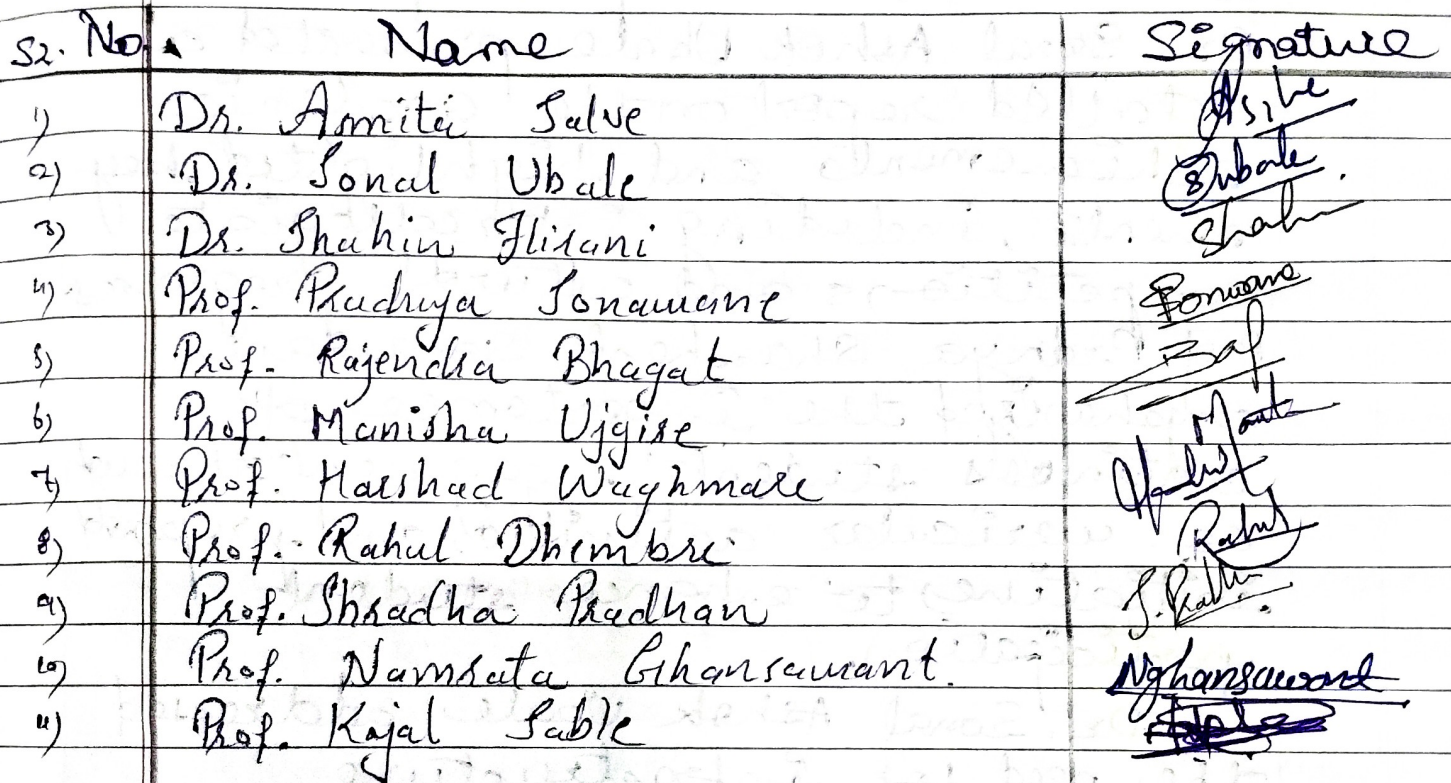 Sr. No. Name Signature
1) Dr. Asmita Salve Asalve
2) Dr. Sonal Ubale Subale
3) Dr. Shahin Jlirani Shah
4) Prof. Pradnya Sonawane Sonwane
5) Prof. Rajendra Bhagat
6) Prof. Manisha Ujgire
7) Prof. Harshad Waghmare
8) Prof. Rahul Dhembre Rahul
9) Prof. Shradha Pradhan
10) Prof. Namrata Ghansawant. Nghansawant
11) Prof. Kajal Sable